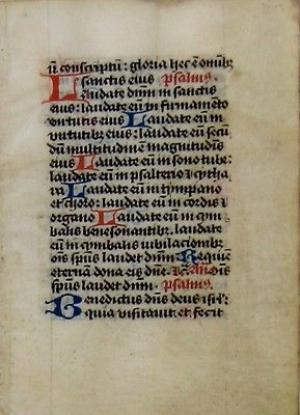 ū conscriptū: gloria hec ē om̄ibꝫ
sanctis eius Psalmus.
Laudate dn̄m in sanctis
eius: laudate eū in firmamēto
virtutis eius Laudate eum in
virtutibꝫ eius: laudate eū secū
dum multitudinē magnitudis
eius Laudate eū in sono tube:
laudate eum in psalterio ⁊ cytha
ra Laudate eum in tympano
et choro: laudate eum in cordis ⁊
organo Laudate eum in cym
balis benesonantibꝫ. laudate
eū in cymbalis iubilacionibꝫ
om̄s spūs laudet dn̄m Requiem
eternā dona eis dn̄e. An̄ Om̄is
spūs laudet dn̄m. Psalmus.
Benedictus dn̄s deus isrl̄:
quia visitavit et fecit